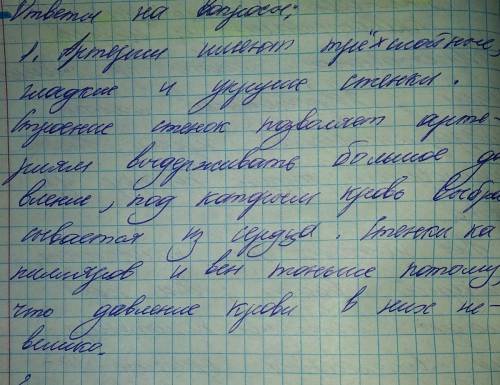 Ответы на вопросы;
1. Артерии имеют трёхслойные,
гладкие и упругие стенки.
Строение стенок позволяет арте-
риям выдерживать большое да
вление, под которым кровь выбра
сывается из сердца. Стенки ка
пилляров и вен тоньше потому,
что давление крови в них не-
велико.